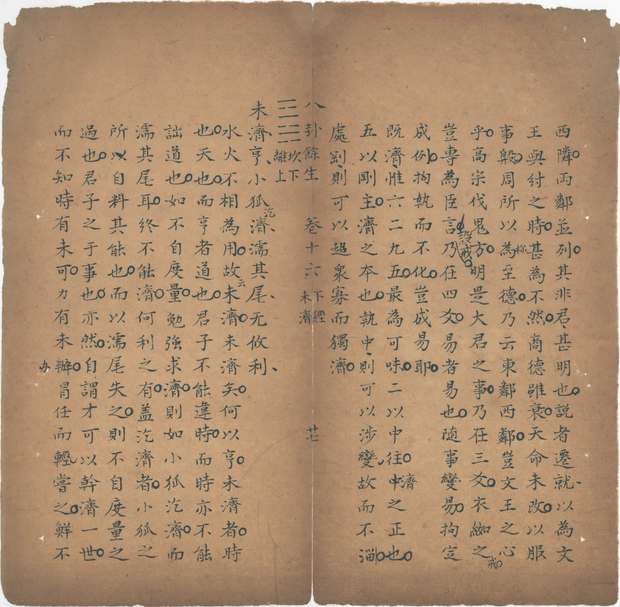 西隣两鄰並列其非君甚明也說者遷就以為文
王與紂之時甚為不然商德雖衰天命未改以服
事殷周所以為至德乃云東鄰西鄰豈文王之心
乎高宗伐鬼方明是大君之事乃在三爻衣袽之戒
豈專為臣言乃在四爻易者易也随事變易拘定
終戒
成例拘執而不化豈成易耶
既濟惟六二九五最為可味二以中往中之正也
濟
五以剛主濟之夲也執中則可以涉變故而不淄
處剥則可以超衆寡而獨濟
八卦餘生 卷十六 下經 未濟
坎下
離上
未濟亨小狐汔濟濡其尾无攸利
水火不相為用故云未濟未濟矣何以亨未濟者時
也天也而亨者道也君子不能違時而時亦不能
詘道也如不自度量勉強求濟則如小狐汔濟而
濡其尾耳終不能濟何利之有盖汔濟者小狐之
所以自料其能也而以濡尾失之則不自度量之
過也君子之于事也亦然自謂才可以幹濟一世
而不知時有未可力有未辦冐任而輕嘗之鮮不